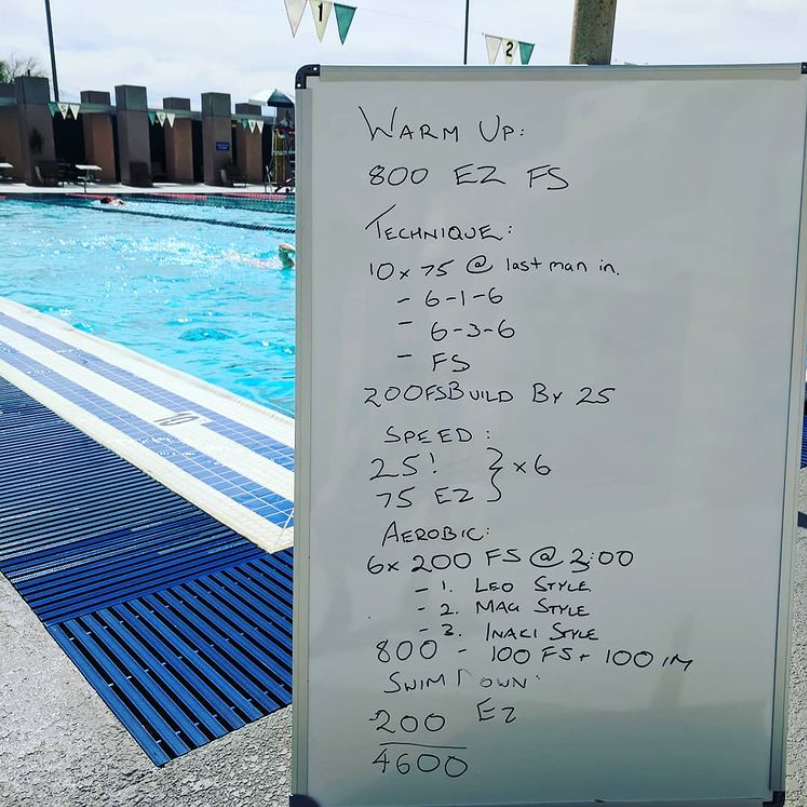 1
2
WARM UP:
800 EZ FS
TECHNIQUE:
10 x 75 @ last man in.
- 6-1-6
- 6-3-6
- FS
200FSBUILD BY 25
SPEED:
25! } x6
75 EZ
AEROBIC:
6x 200 FS @ 3:00
- 1. LEO STYLE
- 2. MAG STYLE
- 3. INAKI STYLE
800 - 100 FS + 100 IM
SWIM DOWN:
200 EZ
4600